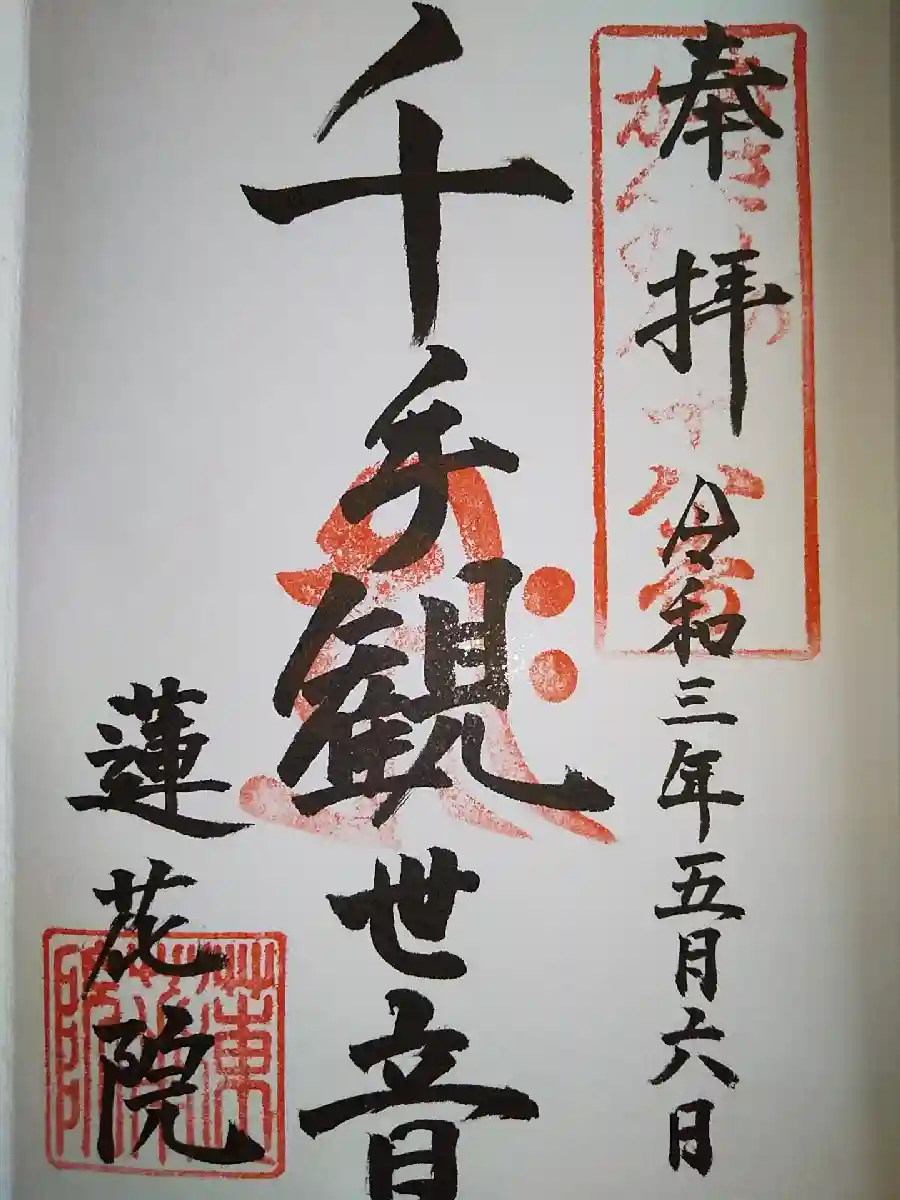 奉拝
令和三年五月六日
千手観世音
蓮花院
蓮花院